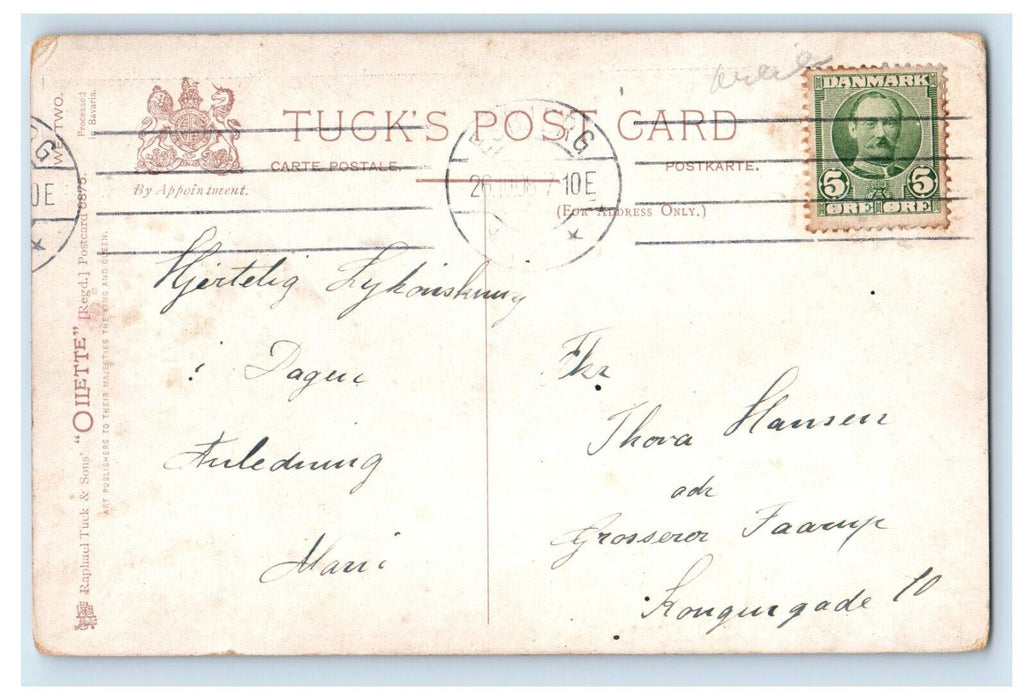 TUCK'S POST CARD
CARTE POSTALE.
POSTKARTE.
By Appointment.
(FOR ADDRESS ONLY.)
DANMARK
5 5
ØRE ØRE
10E
Hjertelig Lykønskning
i Dagens
Anledning
Marie
Frk
Thora Hansen
adr
Grosserer Faarup
Kongensgade 10
WE TWO.
Processed in Bavaria.
Raphael Tuck & Sons' "OILETTE" [Regd.] Postcard 6876.
ART PUBLISHERS TO THEIR MAJESTIES THE KING AND QUEEN.